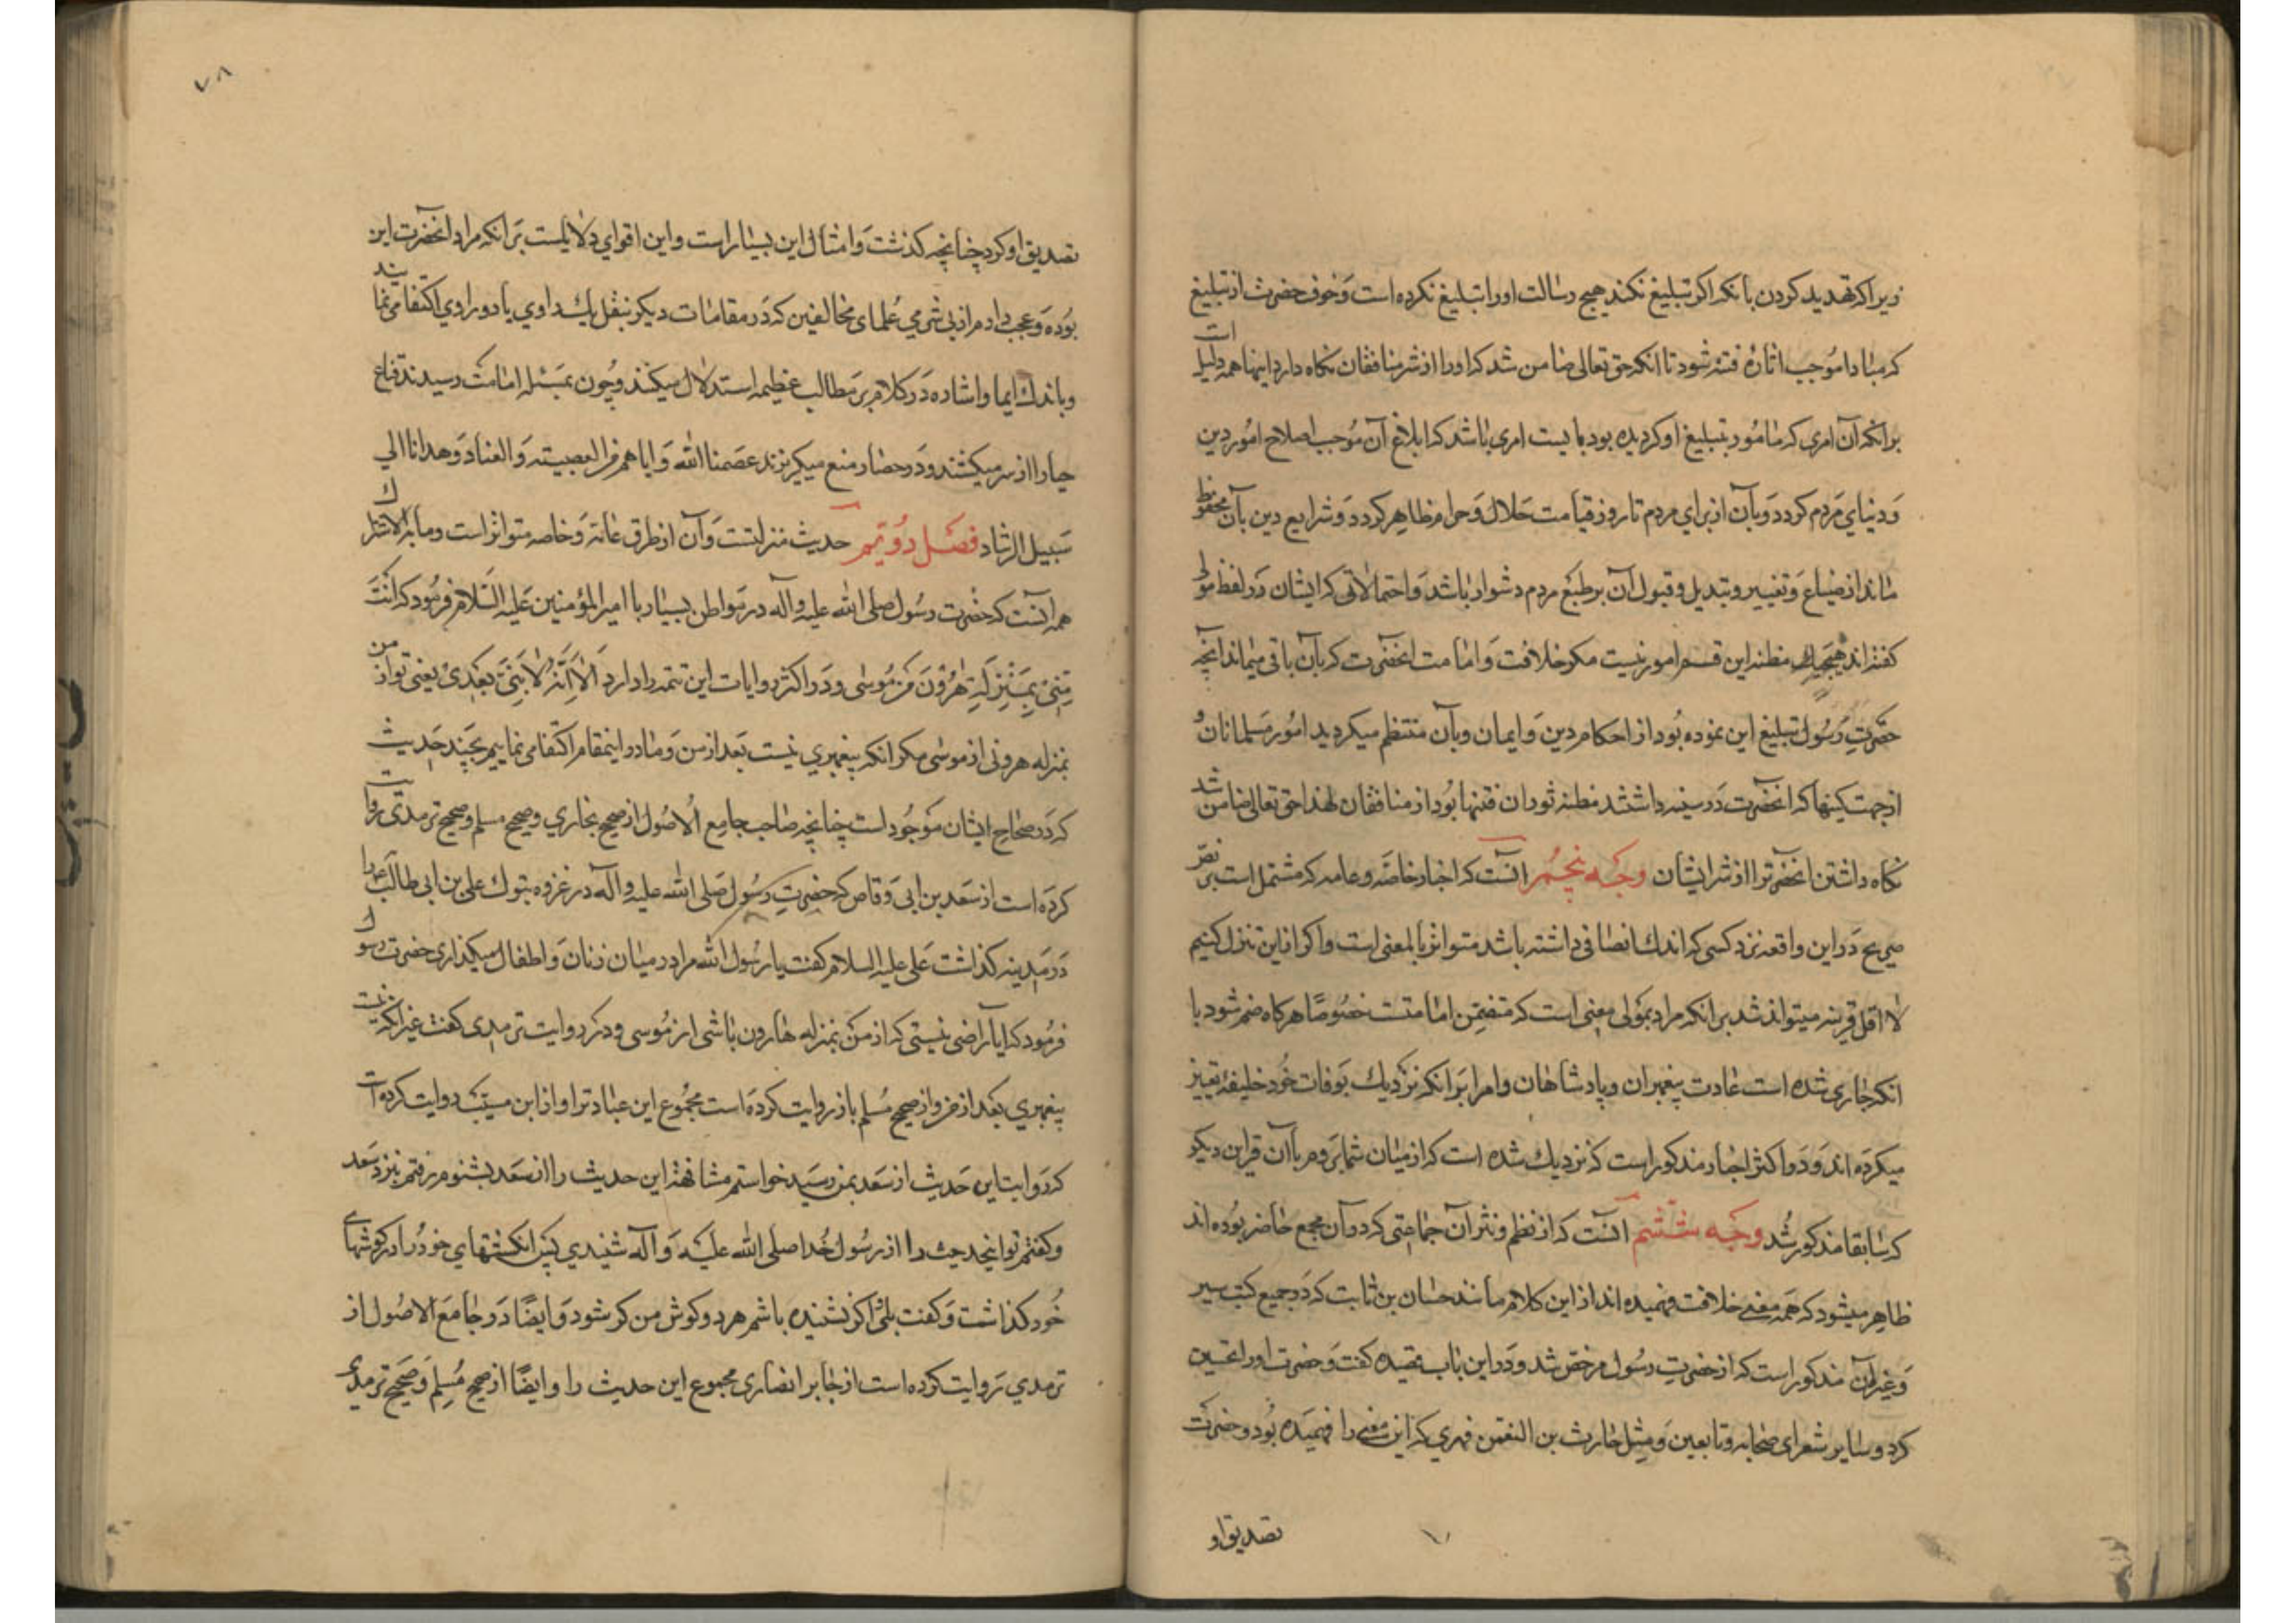 زیرا که تهدید کردن بانکه اکر تبلیغ نکند هیچ رسالت او را تبلیغ نکرده است وخوف حضرت از تبلیغ
که مبادا موجب اثارهٔ فتنه شود تا انکه حق تعالی ضامن شد که او را از شر منافقان نکاه دارد اینها همه دلیل است
برانکه آن امری که مامور بتبلیغ او کردیده بود بایست امری باشد که ابلاغ آن موجب اصلاح امور دین
ودنیای مردم کردد وبآن از برای مردم تا روز قیامت حلال وحرام ظاهر کردد وشرایع دین بآن محفوظ
ماند از ضیاع وتغییر وتبدیل وقبول آن بر طبع مردم دشوار باشد واحتمالاتی که ایشان در لفظ مولی
کفته‌اند هیچیک مظنه این قسم امور نیست مکر خلافت وامامت انحضرت که بآن باقی میماند انچه
حضرت رسول تبلیغ این نموده بود از احکام دین وایمان وبآن منتظم میکردید امور مسلمانان و
از جهت کینها که انحضرت در سینه داشتند مظنه ثوران فتنها بود از منافقان لهذا حق تعالی ضامن شد
نکاه داشتن انحضرترا از شر ایشان وجه پنجم انست که اخبار خاصه وعامه که مشتمل است بر نص
صریح در این واقعه نزد کسی که اندک انصافی داشته باشد متواتر بالمعنی است واکر از این تنزل کنیم
لا اقل قرینه میتواند شد بر انکه مراد بمولی معنی است که متضمن امامتست خصوصًا هرکاه ضم شود با
انکه جاری شده است عادت پیغمبران وپادشاهان وامرا بر انکه نزدیک بوفات خود خلیفه تعیین
میکرده اند ودر اکثر اخبار مذکور است که نزدیک شده است که از میان شما بروم با آن قراین دیکر
که سابقا مذکور شد وجه ششم انست که از نظم ونثر آن جماعتی که در آن مجمع حاضر بوده اند
ظاهر میشود که همه معنی خلافت فهمیده اند از این کلام مانند حسان بن ثابت که در جمیع کتب سیر
وغیر آن مذکور است که از حضرت رسول مرخص شد ودر این باب قصیده کفت وحضرت او را تحسین
کرد وسایر شعرای صحابه وتابعین ومثل حارث بن النعمن فهری که این معنی را فهمیده بود وحضرت
تصدیق او
۷۸
تصدیق او کرد چنانچه کذشت وامثال این بسیار است واین اقوای دلایلست برانکه مراد انحضرت این
بوده وعجب دارم از بی شرمی علمای مخالفین که در مقامات دیکر بنقل یک راوی یا دو راوی اکتفا می نمایند
وباندک ایما واشاره در کلام بر مطالب عظیمه استدلال میکنند وچون بمسئله امامت رسیدند قناع
حیا را از سر میکشند ودر حصار منع میکریزند عصمنا الله وایاهم من العصبیته والعناد وهدانا الی
سبیل الرشاد فصل دویم حدیث منزلتست وآن از طرق عامه وخاصه متواتر است وما به الاشتراک
همه آنست که حضرت رسول صلی الله علیه وآله در مواطن بسیار با امیر المؤمنین علیه السلام فرمود که انت
منی بمنزلة هرون من موسی ودر اکثر روایات این تتمه را دارد الا انه لا نبی بعدی یعنی تو از من
بمنزله هرونی از موسی مکر انکه پیغمبری نیست بعد از من وما در اینمقام اکتفا می نماییم بچند حدیث
که در صحاح ایشان موجود است چنانچه صاحب جامع الاصول از صحیح بخاری وصحیح مسلم وصحیح ترمدی روایت
کرده است از سعد بن ابی وقاص که حضرت رسول صلی الله علیه وآله در غزوه تبوک علی بن ابی طالب را
در مدینه کذاشت علی علیه السلام کفت یا رسول الله مرا در میان زنان واطفال میکذاری حضرت رسول
فرمود که ایا راضی نیستی که از من بمنزله هارون باشی از موسی ودر روایت ترمدی کفت غیر انکه نیست
پیغمبری بعد از من واز صحیح مسلم باز روایت کرده است مجموع این عبارترا واز ابن مسیب روایت کرده است
که روایت این حدیث از سعد بمن رسید خواستم مشافهة این حدیث را از سعد بشنوم رفتم نزد سعد
وکفتم تو اینحدیث را از رسول خدا صلی الله علیه وآله شنیدی پس انکشتهای خود را در کوشهای
خود کذاشت وکفت بلی اکر نشنیده باشم هر دو کوش من کر شود وایضًا در جامع الاصول از
ترمدی روایت کرده است از جابر انصاری مجموع این حدیث را وایضًا از صحیح مسلم وصحیح ترمدی